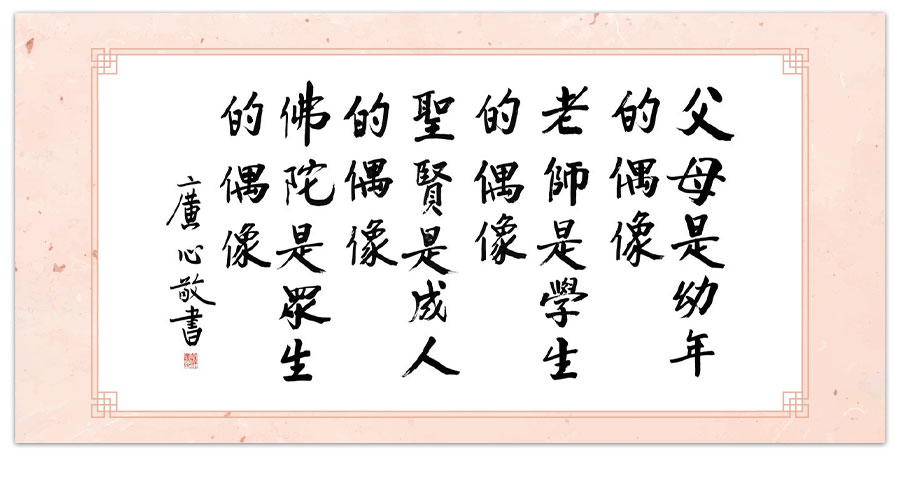 父母是幼年
的偶像
老師是學生
的偶像
聖賢是成人
的偶像
佛陀是眾生
的偶像
廣心敬書